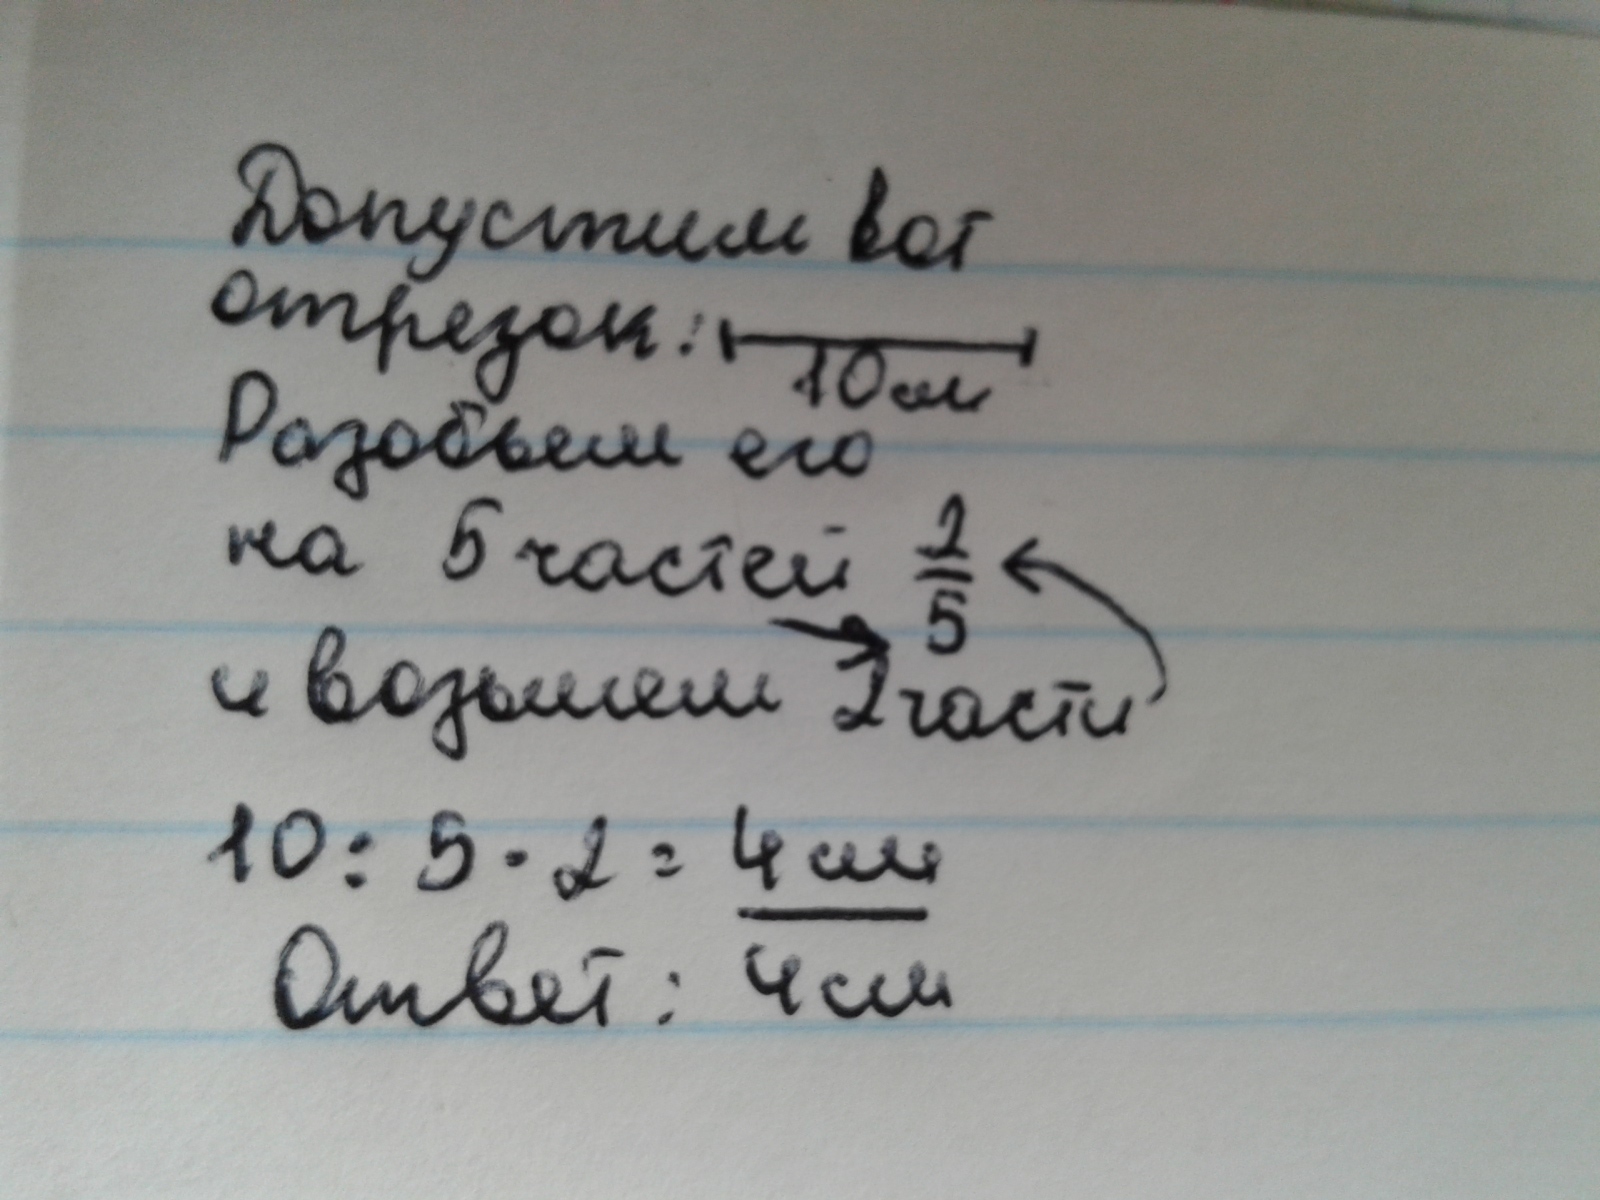 Допустим вот
отрезок: 10см
Разобьем его
на 5 частей 2/5
и возьмем 2 части
10 : 5 · 2 = 4 см
Ответ: 4 см